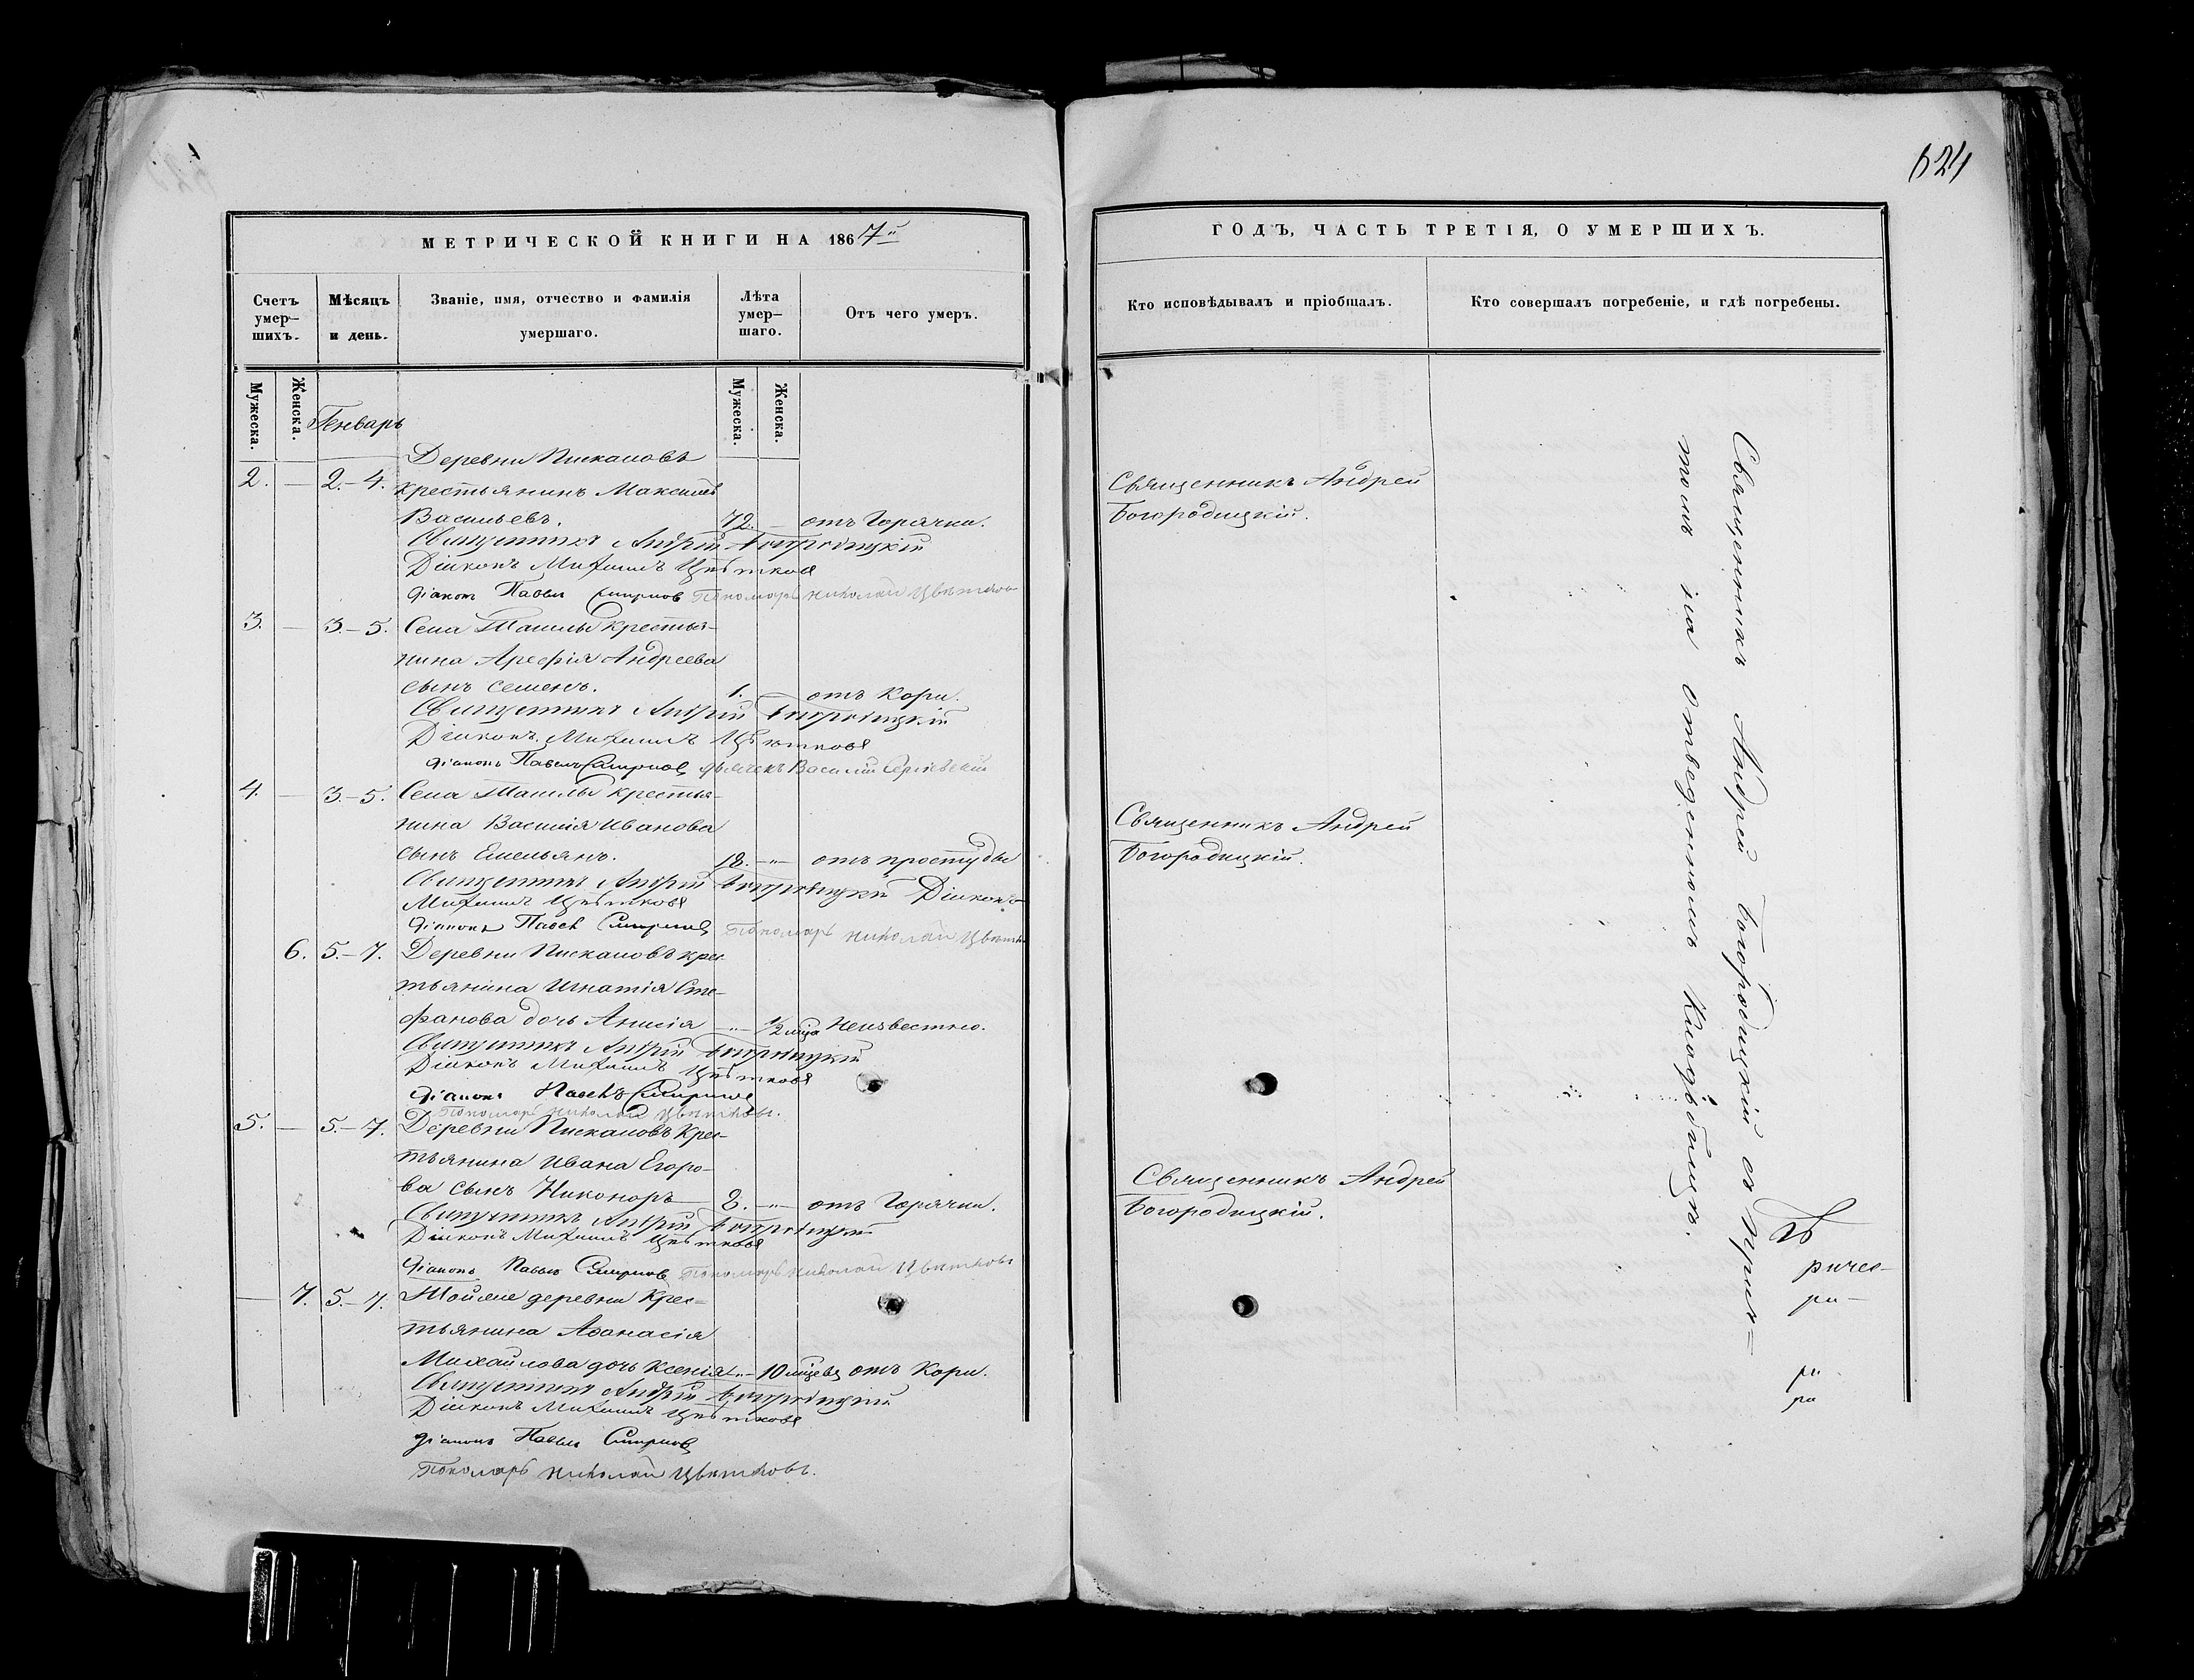 624
МЕТРИЧЕСКОЙ КНИГИ НА 1867й
Счетъ умер-шихъ.
Мѣсяцъ и день.
Званіе, имя, отчество и фамилія умершаго.
Лѣта умер-шаго.
Отъ чего умеръ.
Мужеска.
Женска.
Мужеска.
Женска.
Генварь
Деревни Пискаловъ
2. — 2.-4. крестьянинъ Максимъ
Васильевъ. 72. — отъ Горячки.
Священникъ Андрей Богородицкій
Діаконъ Михаилъ Цвѣтковъ
Діаконъ Павелъ Смирновъ Пономарь Николай Цвѣтковъ
3. — 3.-5. Села крестья-
нина Арефія Андреева
сынъ Семенъ. 1. — отъ Кори.
Священникъ Андрей Богородицкій
Діаконъ Михаилъ Цвѣтковъ
Діаконъ Павелъ Смирновъ дьячекъ Василій Сергіевскій
4. — 3.-5. Села крестья-
нина Василія Иванова
сынъ Емельянъ. 18. -"- отъ простуды
Священникъ Андрей Богородицкій Діаконъ
Михаилъ Цвѣтковъ
Діаконъ Павелъ Смирновъ Пономарь Николай Цвѣтковъ
6. 5.-7. Деревни Пискаловъ крес-
тьянина Игнатія Сте-
фанова дочь Анисія -"- 1/2 мца Неизвестно.
Священникъ Андрей Богородицкій
Діаконъ Михаилъ Цвѣтковъ
Діаконъ Павелъ Смирновъ
Пономарь Николай Цвѣтковъ.
5. — 5.-7. Деревни Пискаловъ Крес-
тьянина Ивана Егоро-
ва сынъ Никоноръ 2. -"- отъ Горячки.
Священникъ Андрей Богородицкій
Діаконъ Михаилъ Цвѣтковъ
Діаконъ Павелъ Смирновъ Пономарь Николай Цвѣтковъ
— 7. 5.-7. деревни Крес-
тьянина Аѳанасія
Михайлова дочь Ксенія -"- 10 мцевъ отъ Кори.
Священникъ Андрей Богородицкій
Діаконъ Михаилъ Цвѣтковъ
Діаконъ Павелъ Смирновъ
Пономарь Николай Цвѣтковъ.
ГОДЪ, ЧАСТЬ ТРЕТІЯ, О УМЕРШИХЪ.
Кто исповѣдывалъ и пріобщалъ.
Кто совершалъ погребеніе, и гдѣ погребены.
Священникъ Андрей
Богородицкій.
Священникъ Андрей
Богородицкій.
Священникъ Андрей
Богородицкій.
Священникъ Андрей Богородицкій съ Прич=
томъ на отведенномъ Кладбищѣ.